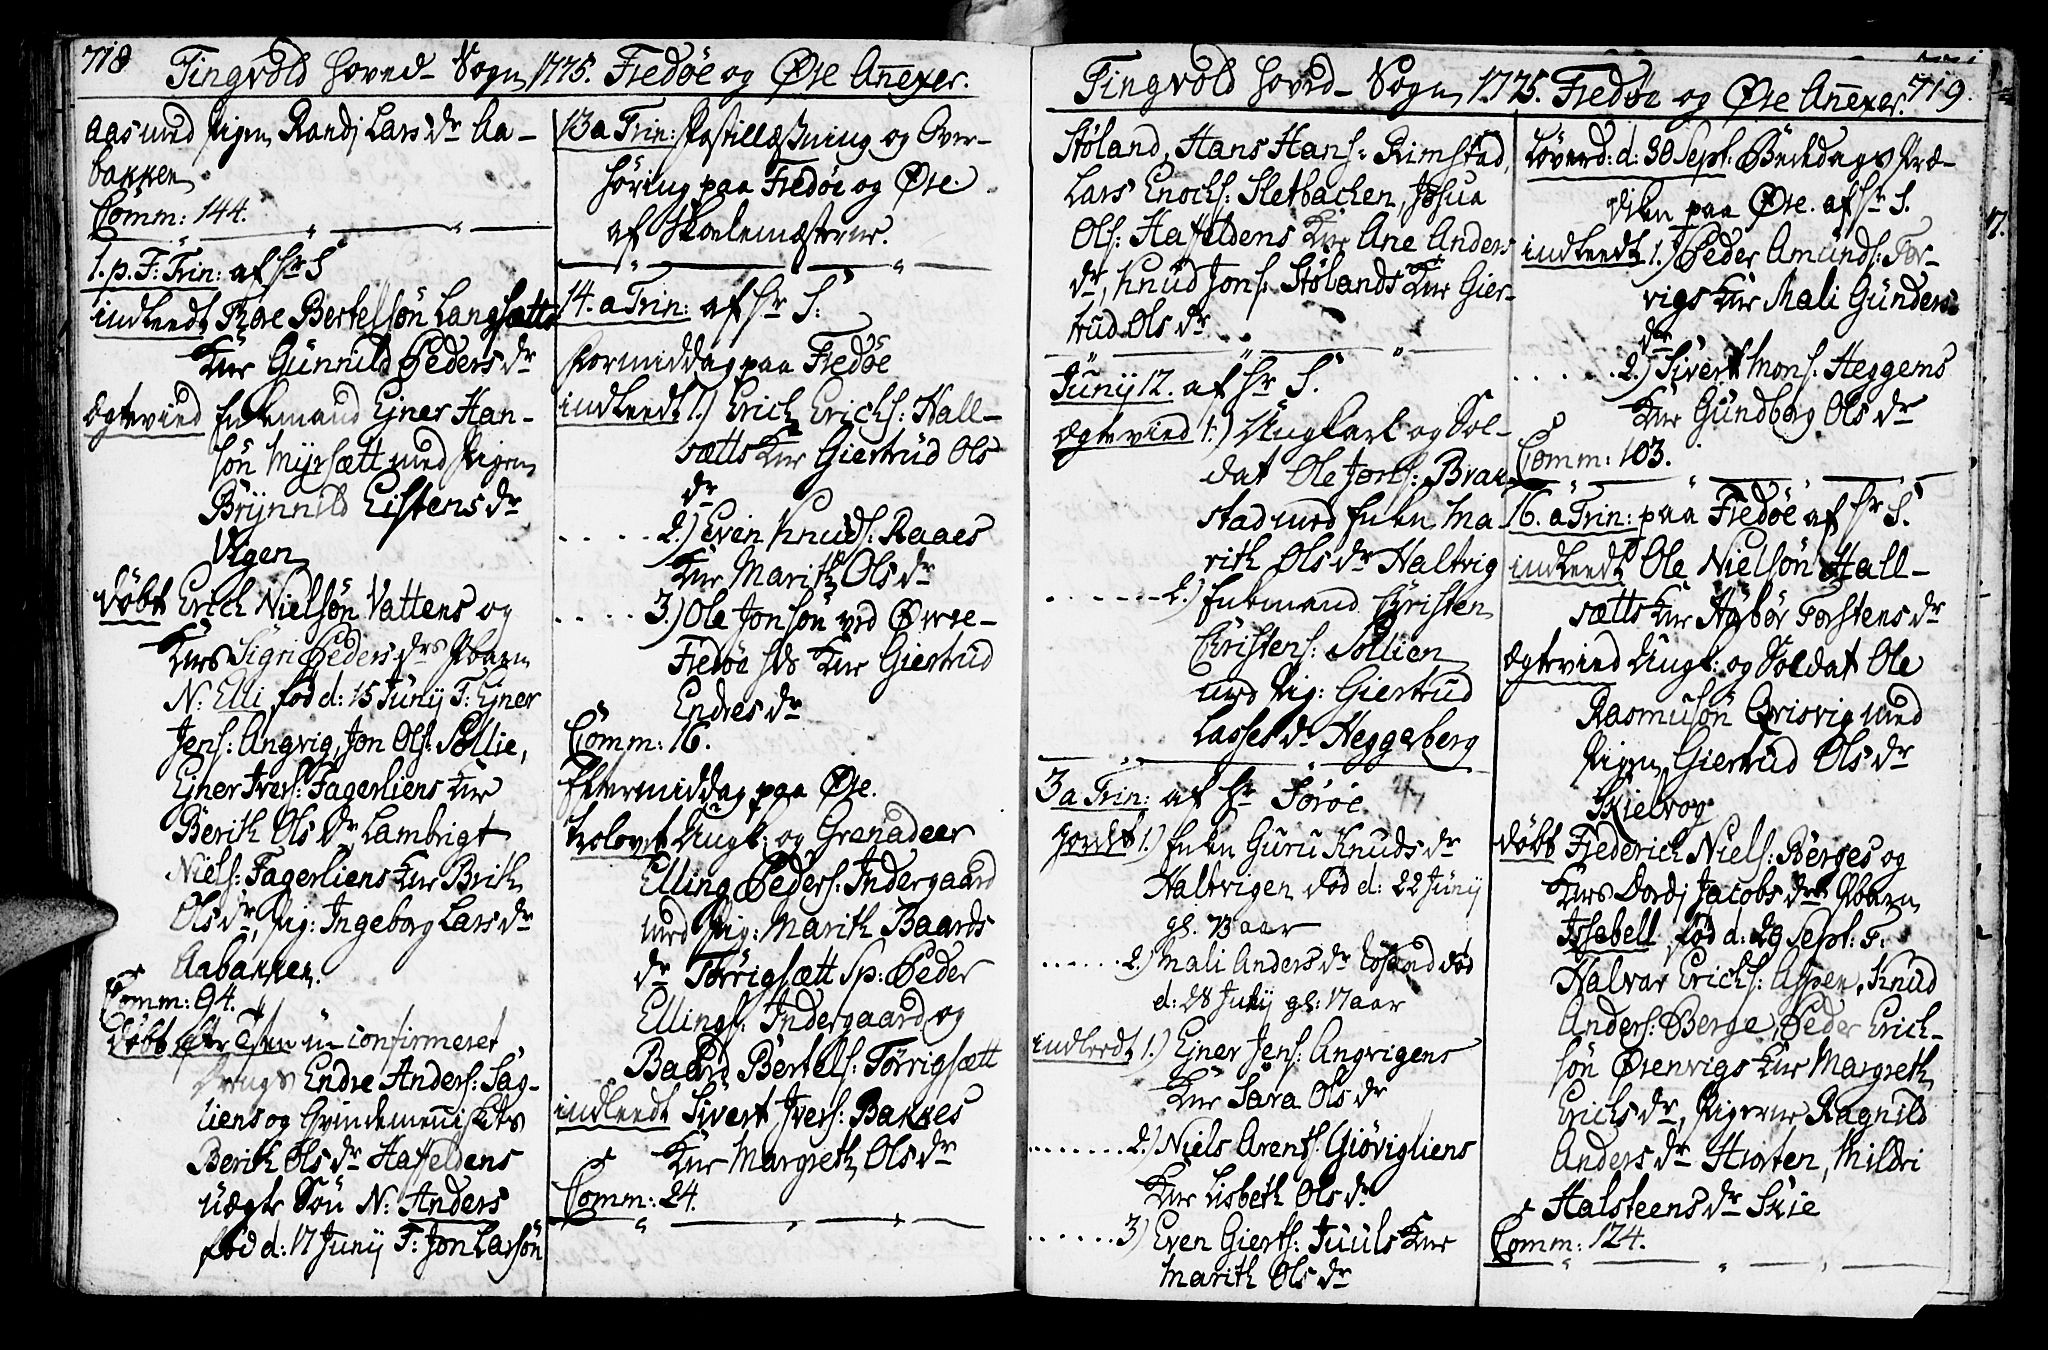 718 Tingvold Hoved- Sogn 1775. Fredøe og Øre Anexer.
Aas med Pigen Randj Lars dr Aa-
bakken
Comm: 144.
1. p. F: Trin: af Hr S
indleedt Tore Bertelsøn Langsætts
Kne Gunnild Peders dr
Ægtevied Enkemand Ejner Han-
søn Myrsætt med Pigen
Brynnild Eistens dr
Vigen
døbt Erich Nielsøn Vattens og
Knes Sigri Peders drs Pbarn
N: Elli, fød d: 15 Junij F: Ejner
Jens: Angvig, Jon Ols: Sollie,
Ejner Ivers: Fagerliens Kne
Berith Ols dr, Lambrigt
Niels: Fagerliens Kne Brith
Ols dr, Pig: Ingeborg Lars dr
Aabakken.
Comm: 94.
døbt confirmeret
Endre Anders: Sag-
liens og Qvindemenniskets
Berith Ols dr Hafseldens
uægte Søn N: Anders
fød d: 17 Junij F: Jon Larsøn
13 a Trin: Postillæsning og Over-
høring paa Fredøe og Øre
af Skolemesterne.
14. a Trin: af Hr S:
Formiddag paa Fredøe
indleedt 1.) Erich Erichs: Hall-
sætts Kne Giertrud Ols
dr
2.) Even Knuds: Raaes
Kne Marith Ols dr
3.) Ole Jonsøn ved Øvre-
Fredøe Kne Giertrud
Endres dr
Comm: 16.
Eftermiddag paa Øre.
trolovet Ungk: og Grenadeer
Elling Peders: Indergaard
med Pig: Marith Baards
dr Torrigsætt Sp: Peder
Ellings: Indergaard og
Baard Bertels: Torrigsætt
indleedt Sivert Ivers: Bakkes
Kne Margreth Ols dr
Comm: 24.
Tingvold Hoved- Sogn 1775. Fredøe og Øre Anexer. 719.
Støland, Hans Hans: Rimstad,
Lars Enochs: Sletbachen, Josua
Ols: Hafseldens Kne Ane Anders
dr, Knud Jons: Stølands Kne Gier-
trud Ols dr
Junij 12. af Hr S.
Ægtevied 1.) Ungkarl og Sol-
dat Ole Jons: Brak-
stad med Enken Ma-
rith Ols dr Haltvig
2.) Enkemand Christen
Christens: Sollien
med Pig: Giertrud
Lasses dr Heggeberg
3 a Trin: af Hr Sørøe
jordet 1.) Enken Guru Knuds dr
Haltvigen død d: 22 Junij
gl. 73 aar
2.) Mali Anders dr død
d: 28 Junij gl: 17 aar
indleedt 1.) Ejner Jens: Angvigens
Kne Sara Ols dr
2.) Niels Arents: Giøvigliens
Kne Lisbeth Ols dr
3) Even Gierts: Juuls Kne
Marith Ols dr
Løverd: d: 30 Sept: Bededags Præ-
diken paa Øre. af Hr S.
indleedt 1.) Peder Amunds: Tor-
vigs Kne Mali Gunders
dr
2.) Sivert Mons: Heggems
Kne Gundborg Ols dr
Comm: 103.
16. a Trin: paa Fredøe af Hr S.
indleedt Ole Nielsøn Hall-
sætts Kne Agbor Torstens dr
Ægtevied Ungk: og Soldat Ole
Rasmusøn Qvisvig med
Pigen Giertrud Ols dr
Skielvog
døbt Frederich Niels: Berges og
Knes Dordj Jacobs drs Pbarn
Issabell, fød d: 29 Sept: F:
Halvar Erichs: Aspen, Knud
Anders: Berge, Peder Erich-
søn Ørenvigs Kne Margreth
Erichs dr, Pigerne Ragnild
Anders dr Hiorten, Mildri
Halsteens dr Skie
Comm: 124.
17.